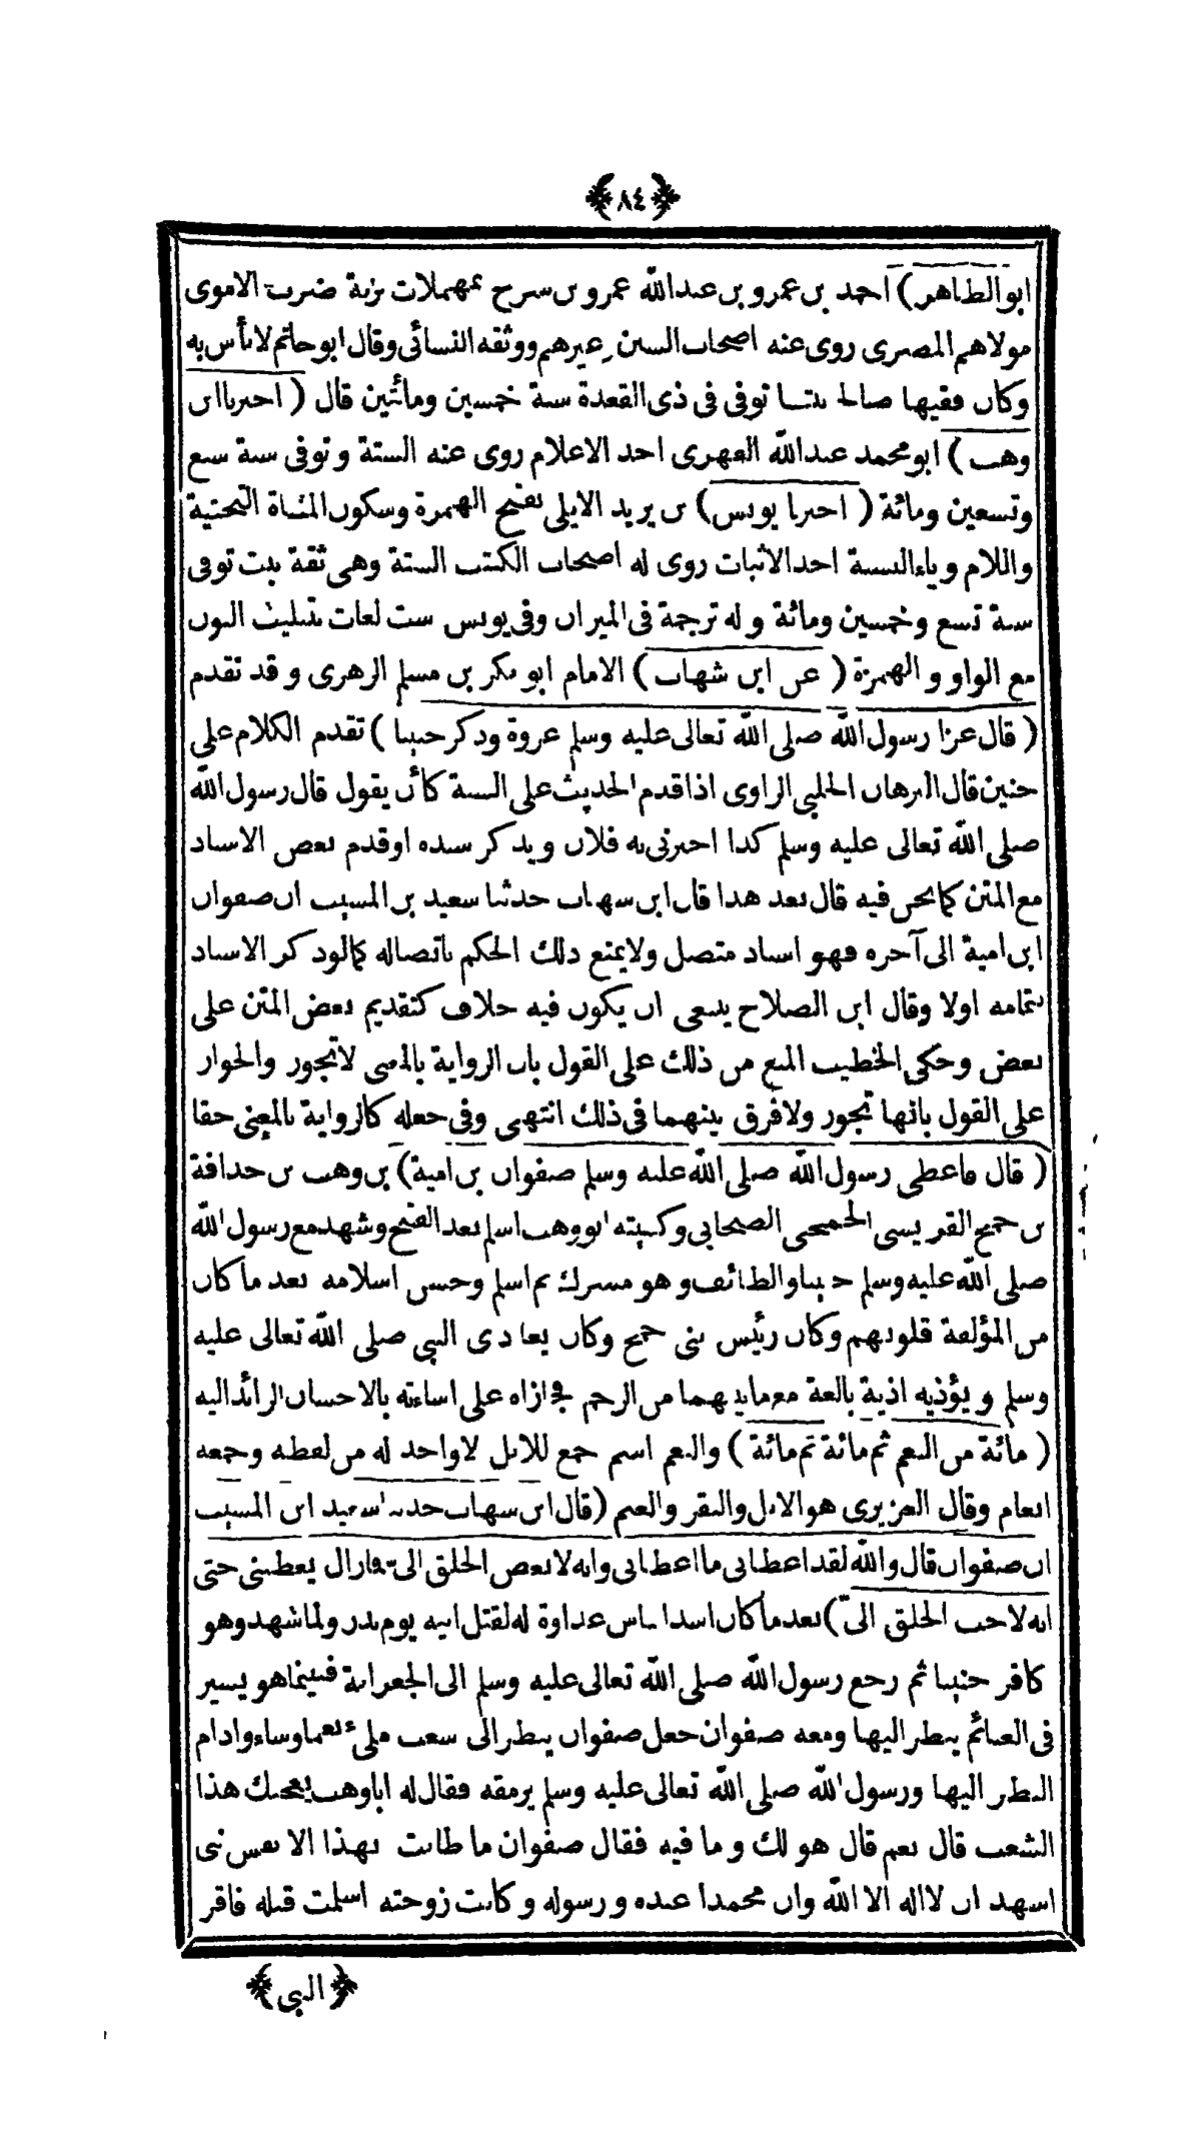 ﴿٨٤﴾
ابوالطاهر) احمد بن عمرو بن عبدالله عمرو بن سرح بمهملات بزنة ضرب الاموى
مولاهم المصرى روى عنه اصحاب السنن وغيرهم ووثقه النسائى وقال ابوحاتم لابأس به
وكان فقيها صالحا ثبتا توفى فى ذى القعدة سنة خمسين ومائتين قال (اخبرنا ابن
وهب) ابومحمد عبدالله الفهرى احد الاعلام روى عنه الستة وتوفى سنة سبع
وتسعين ومائة (اخبرنا يونس) بن يزيد الايلى بفتح الهمزة وسكون المثناة التحتية
واللام وياءالنسبة احدالاثبات روى له اصحاب الكتب الستة وهى ثقة ثبت توفى
سنة تسع وخمسين ومائة وله ترجمة فى الميزان وفى يونس ست لغات بتثليث النون
مع الواو والهمزة (عن ابن شهاب) الامام ابو بكر بن مسلم الزهرى وقد تقدم
(قال غزا رسول الله صلى الله تعالى عليه وسلم غزوة وذكر حنينا) تقدم الكلام على
حنين قال البرهان الحلبى الراوى اذا قدم الحديث على السنة كأن يقول قال رسول الله
صلى الله تعالى عليه وسلم كذا اخبرنى به فلان ويذكر سنده اوقدم بعض الاسناد
مع المتن كمانحن فيه قال بعد هذا قال ابن شهاب حدثنا سعيد بن المسيب ان صفوان
ابن امية الى آخره فهو اسناد متصل ولايمنع ذلك الحكم باتصاله كمالوذكر الاسناد
بتمامه اولا وقال ابن الصلاح ينبغى ان يكون فيه خلاف كتقديم بعض المتن على
بعض وحكى الخطيب المنع من ذلك على القول بان الرواية بالمعنى لاتجوز والجواز
على القول بانها تجوز ولافرق بينهما فى ذلك انتهى وفى جعله كالرواية بالمعنى خفا
(قال فاعطى رسول الله صلى الله عليه وسلم صفوان بن امية) بن وهب بن حذافة
بن جمح القريشى الجمحى الصحابى وكنيته ابووهب اسلم بعد الفتح وشهد مع رسول الله
صلى الله عليه وسلم حنينا والطائف وهو مشرك ثم اسلم وحسن اسلامه بعد ما كان
من المؤلفة قلوبهم وكان رئيس بنى جمح وكان يعادى النبى صلى الله تعالى عليه
وسلم ويؤذيه اذية بالغة مع مابينهما من الرحم فجازاه على اساءته بالاحسان الزائد اليه
(مائة من النعم ثم مائة ثم مائة) والنعم اسم جمع للابل لاواحد له من لفظه وجمعه
انعام وقال العزيزى هو الابل والبقر والغنم (قال ابن شهاب حدثنا سعيد ابن المسيب
ان صفوان قال والله لقد اعطانى ما اعطانى وانه لابغض الخلق الىّ فمازال يعطينى حتى
انه لاحب الخلق الىّ) بعد ما كان اشد الناس عداوة له لقتل ابيه يوم بدر ولما شهد وهو
كافر حنينا ثم رجع رسول الله صلى الله تعالى عليه وسلم الى الجعرانة فبينما هو يسير
فى الغنائم ينظر اليها ومعه صفوان جعل صفوان ينظر الى شعب ملئ نعما وشاء وادام
النظر اليها ورسول الله صلى الله تعالى عليه وسلم يرمقه فقال له اباوهب يعجبك هذا
الشعب قال نعم قال هو لك وما فيه فقال صفوان ما طابت بهذا الا نفس نبى
اشهد ان لااله الا الله وان محمدا عبده ورسوله وكانت زوجته اسلمت قبله فاقر
﴿النبى﴾